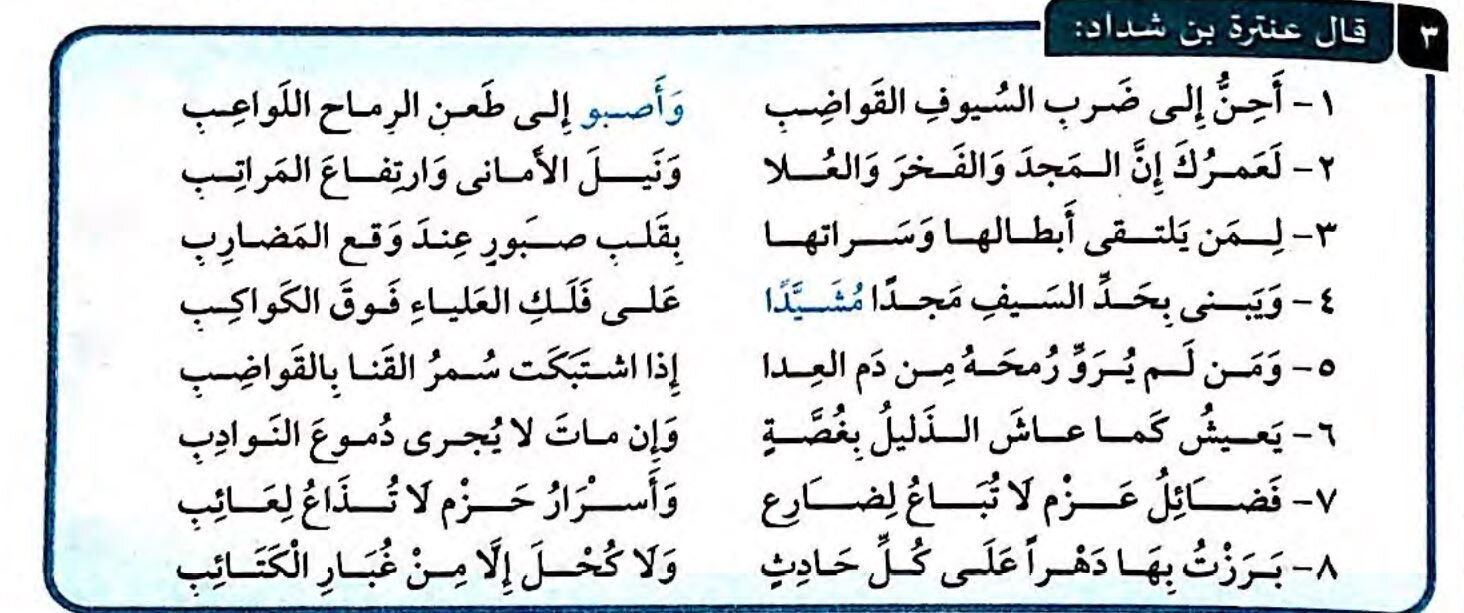 ٣ قال عنترة بن شداد:
١- أَحِنُّ إِلى ضَربِ السُيوفِ القَواضِبِ وَأَصبو إِلى طَعنِ الرِماحِ اللَواعِبِ
٢- لَعَمرُكَ إِنَّ المَجدَ وَالفَخرَ وَالعُلا وَنَيلَ الأَمانى وَارتِفاعَ المَراتِبِ
٣- لِمَن يَلتقى أَبطالها وَسَراتها بِقَلبِ صبورٍ عِندَ وَقعِ المَضارِبِ
٤- وَيَبنى بِحَدِّ السَيفِ مَجدًا مُشَيَّدًا عَلى فَلَكِ العَلياءِ فَوقَ الكَواكِبِ
٥- وَمَن لَم يُرَوِّ رُمحَهُ مِن دَمِ العِدا إِذا اشتَبَكَت سُمرُ القَنا بِالقَواضِبِ
٦- يَعيشُ كَما عاشَ الذَليلُ بِغُصَّةٍ وَإِن ماتَ لا يُجرى دُموعَ النَوادِبِ
٧- فَضَائِلُ عَزْمٍ لَا تُبَاعُ لِضَارِعٍ وَأَسْرَارُ حَزْمٍ لَا تُذَاعُ لِعَائِبِ
٨- بَرَزْتُ بِهَا دَهْراً عَلَى كُلِّ حَادِثٍ وَلَا كُحْلَ إِلَّا مِنْ غُبَارِ الْكَتَائِبِ